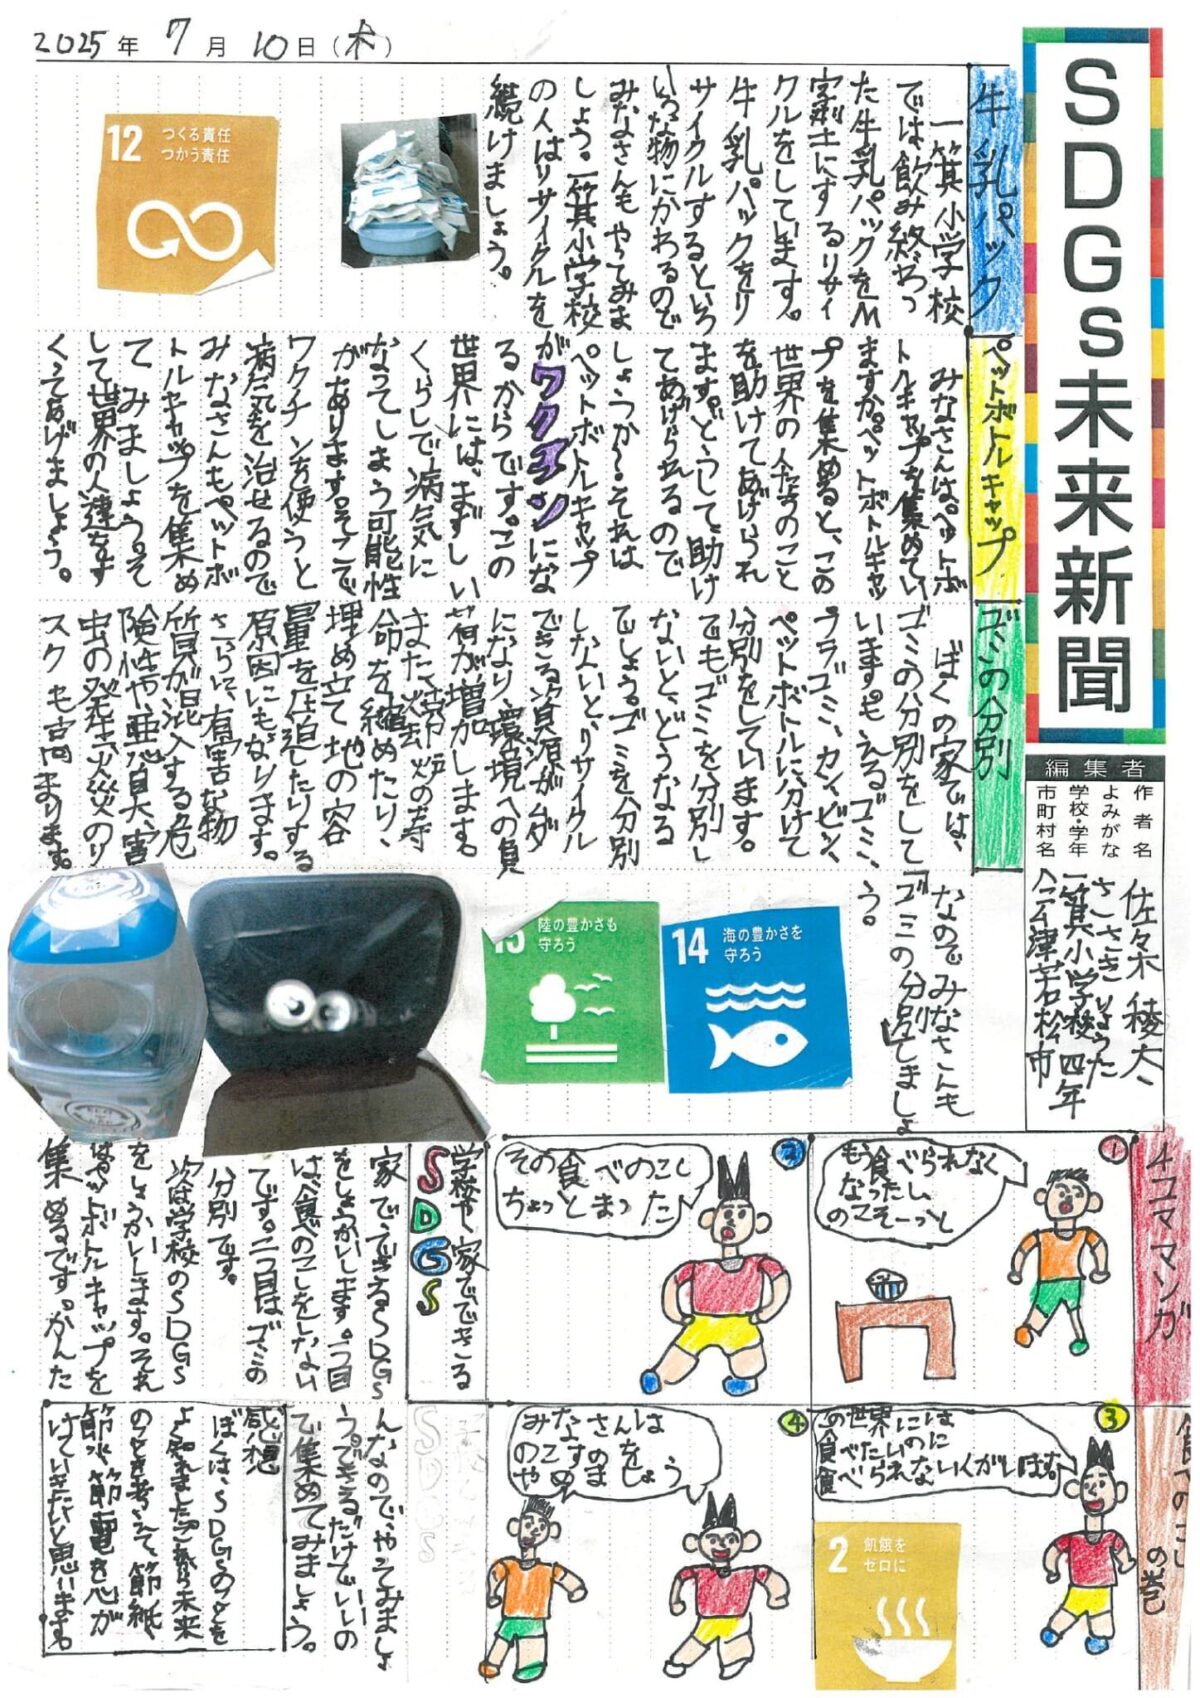 2025年 7月 10日(木)
SDGs未来新聞
編集者
作者名 佐々木 稜太
よみがな ささき りょうた
学校・学年 一箕小学校 四年
市町村名 会津若松市
牛乳パック
一箕小学校
では飲み終わっ
た牛乳パックをM
字型にするリサイ
クルをしています。
牛乳パックをリ
サイクルするといろ
いろな物にかわるので
みなさんもやってみま
しょう。一箕小学校
の人はリサイクルを
続けましょう。
12 つくる責任
つかう責任
ペットボトルキャップ
みなさんはペットボ
トルキャップを集めてい
ますか。ペットボトルキャッ
プを集めると、この
世界の人たちのこと
を助けてあげられ
ます。どうして、助け
てあげられるので
しょうか?それは
ペットボトルキャップ
がワクチンにな
るからです。この
世界には、まずしい
くらしで病気に
なってしまう可能性
があります。そこで
ワクチンを使うと
病気を治せるので
みなさんもペットボ
トルキャップを集め
てみましょう。そ
して世界の人達をす
くってあげましょう。
ゴミの分別
ぼくの家では、
ゴミの分別をして
います。もえるゴミ、
プラゴミ、カン、ビン、
ペットボトルに分けて
分別をしています。
でもゴミを分別し
ないと、どうなる
でしょう。ゴミを分別
しないと、リサイクル
できる資源がムダ
になり、環境への負
荷が増加します。
また、焼却炉の寿
命を縮めたり、
埋め立て地の容
量を圧迫したりする
原因にもなります。
さらに、有害な物
質が混入する危
険性や、悪臭、害
虫の発生、火災のリ
スクも高まります。
なのでみなさんも
「ゴミの分別」しましょ
う。
15 陸の豊かさも
守ろう
14 海の豊かさを
守ろう
4コママンガ
食べのこし
の巻
1
もう食べられなく
なったし
のこそーっと
2
その食べのこし
ちょっとまった
3
世界には
の
食べられない
2 飢餓を
ゼロに
4
みなさんは
のこすのを
やめましょう
学校や家でできる
SDGs
家でできるSDGs
をしょうかいします。一つ目
は、食べのこしをしない
です。二つ目はゴミの
分別です。
次は学校のSDGs
をしょうかいします。それ
はペットボトルキャップを
集めるです。かんた
んなので、やってみましょ
う。できるだけでいいの
で集めてみましょう。
感想
ぼくは、SDGsのことを
よく知れました。これから未来
のことを考えて、節紙、
節水、節電を心が
けていきたいと思います。